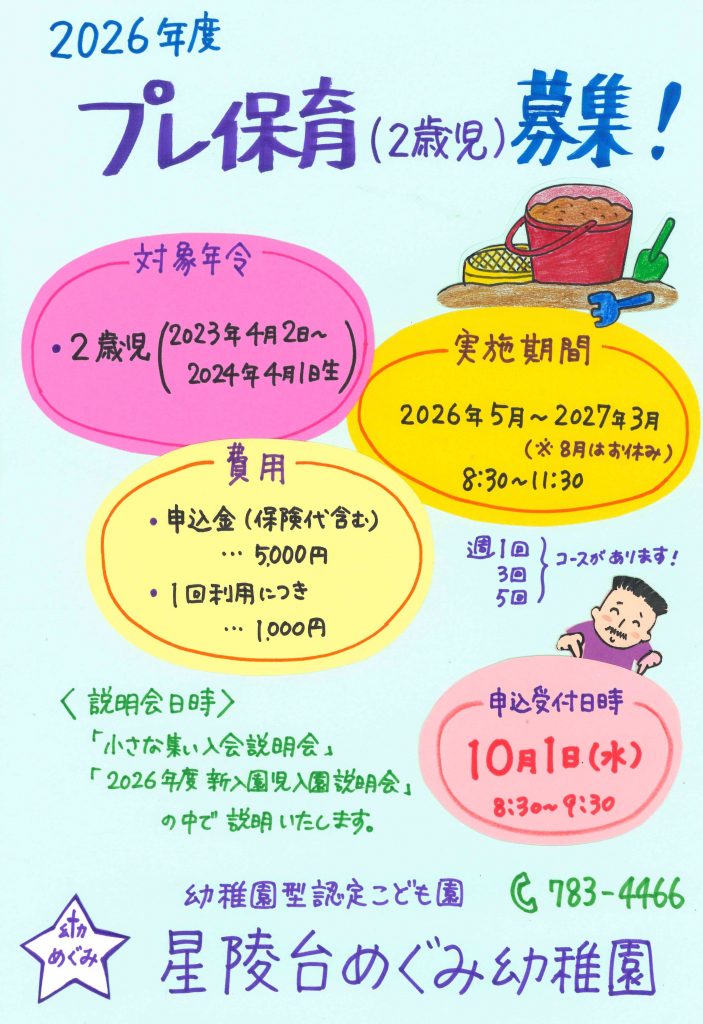 2026年度
プレ保育(2歳児)募集!
対象年令
・2歳児(2023年4月2日~
2024年4月1日生)
実施期間
2026年5月~2027年3月
(※8月はお休み)
8:30~11:30
費用
・申込金(保険代含む)
… 5,000円
・1回利用につき
… 1,000円
週1回
3回
5回
コースがあります!
〈説明会日時〉
「小さな集い入会説明会」
「2026年度新入園児入園説明会」
の中で説明いたします。
申込受付日時
10月1日(水)
8:30~9:30
幼稚園型認定こども園
783-4466
幼
めぐみ
星陵台めぐみ幼稚園